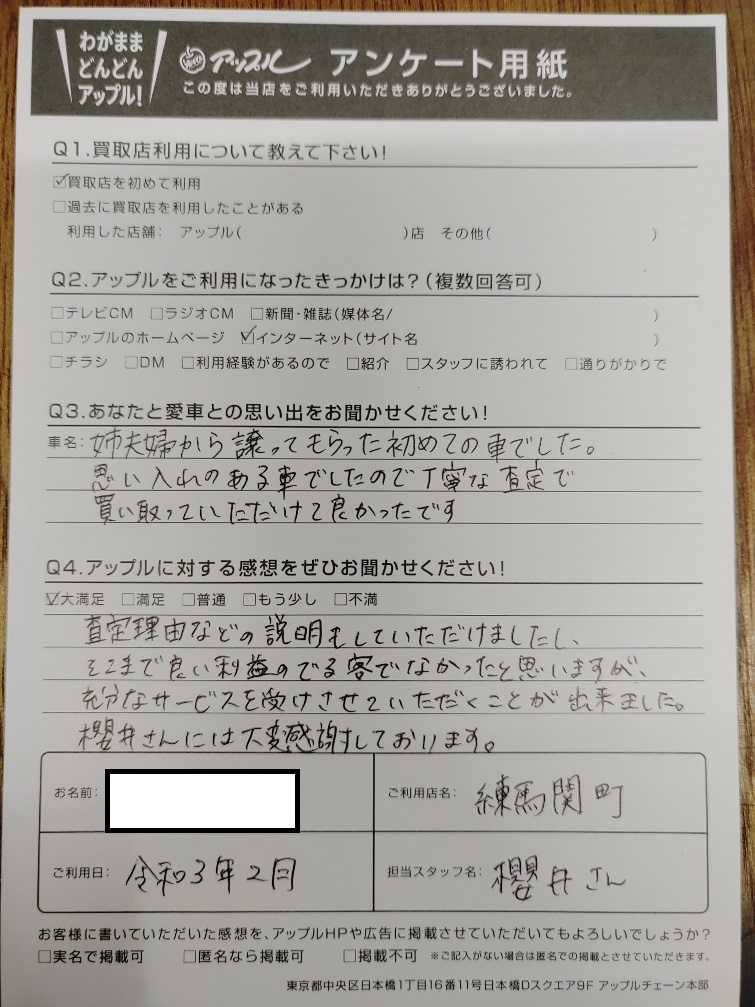 わがまま
どんどん
アップル!
アップル アンケート用紙
この度は当店をご利用いただきありがとうございました。
Q1.買取店利用について教えて下さい!
☑買取店を初めて利用
□過去に買取店を利用したことがある
利用した店舗: アップル( )店 その他( )
Q2.アップルをご利用になったきっかけは?(複数回答可)
□テレビCM □ラジオCM □新聞・雑誌(媒体名/ )
□アップルのホームページ ☑インターネット(サイト名 )
□チラシ □DM □利用経験があるので □紹介 □スタッフに誘われて □通りがかりで
Q3.あなたと愛車との思い出をお聞かせください!
車名: 姉夫婦から譲ってもらった初めての車でした。
思い入れのある車でしたので丁寧な査定で
買い取っていただけて良かったです
Q4.アップルに対する感想をぜひお聞かせください!
☑大満足 □満足 □普通 □もう少し □不満
査定理由などの説明もしていただけましたし、
そこまで良い利益のでる客でなかったと思いますが、
充分なサービスを受けさせていただくことが出来ました。
櫻井さんには大変感謝しております。
お名前:
ご利用店名: 練馬関町
ご利用日: 令和3年2月
担当スタッフ名: 櫻井さん
お客様に書いていただいた感想を、アップルHPや広告に掲載させていただいてもよろしいでしょうか?
□実名で掲載可 □匿名なら掲載可 □掲載不可 ※ご記入がない場合は匿名での掲載とさせていただきます。
東京都中央区日本橋1丁目16番11号日本橋Dスクエア9F アップルチェーン本部